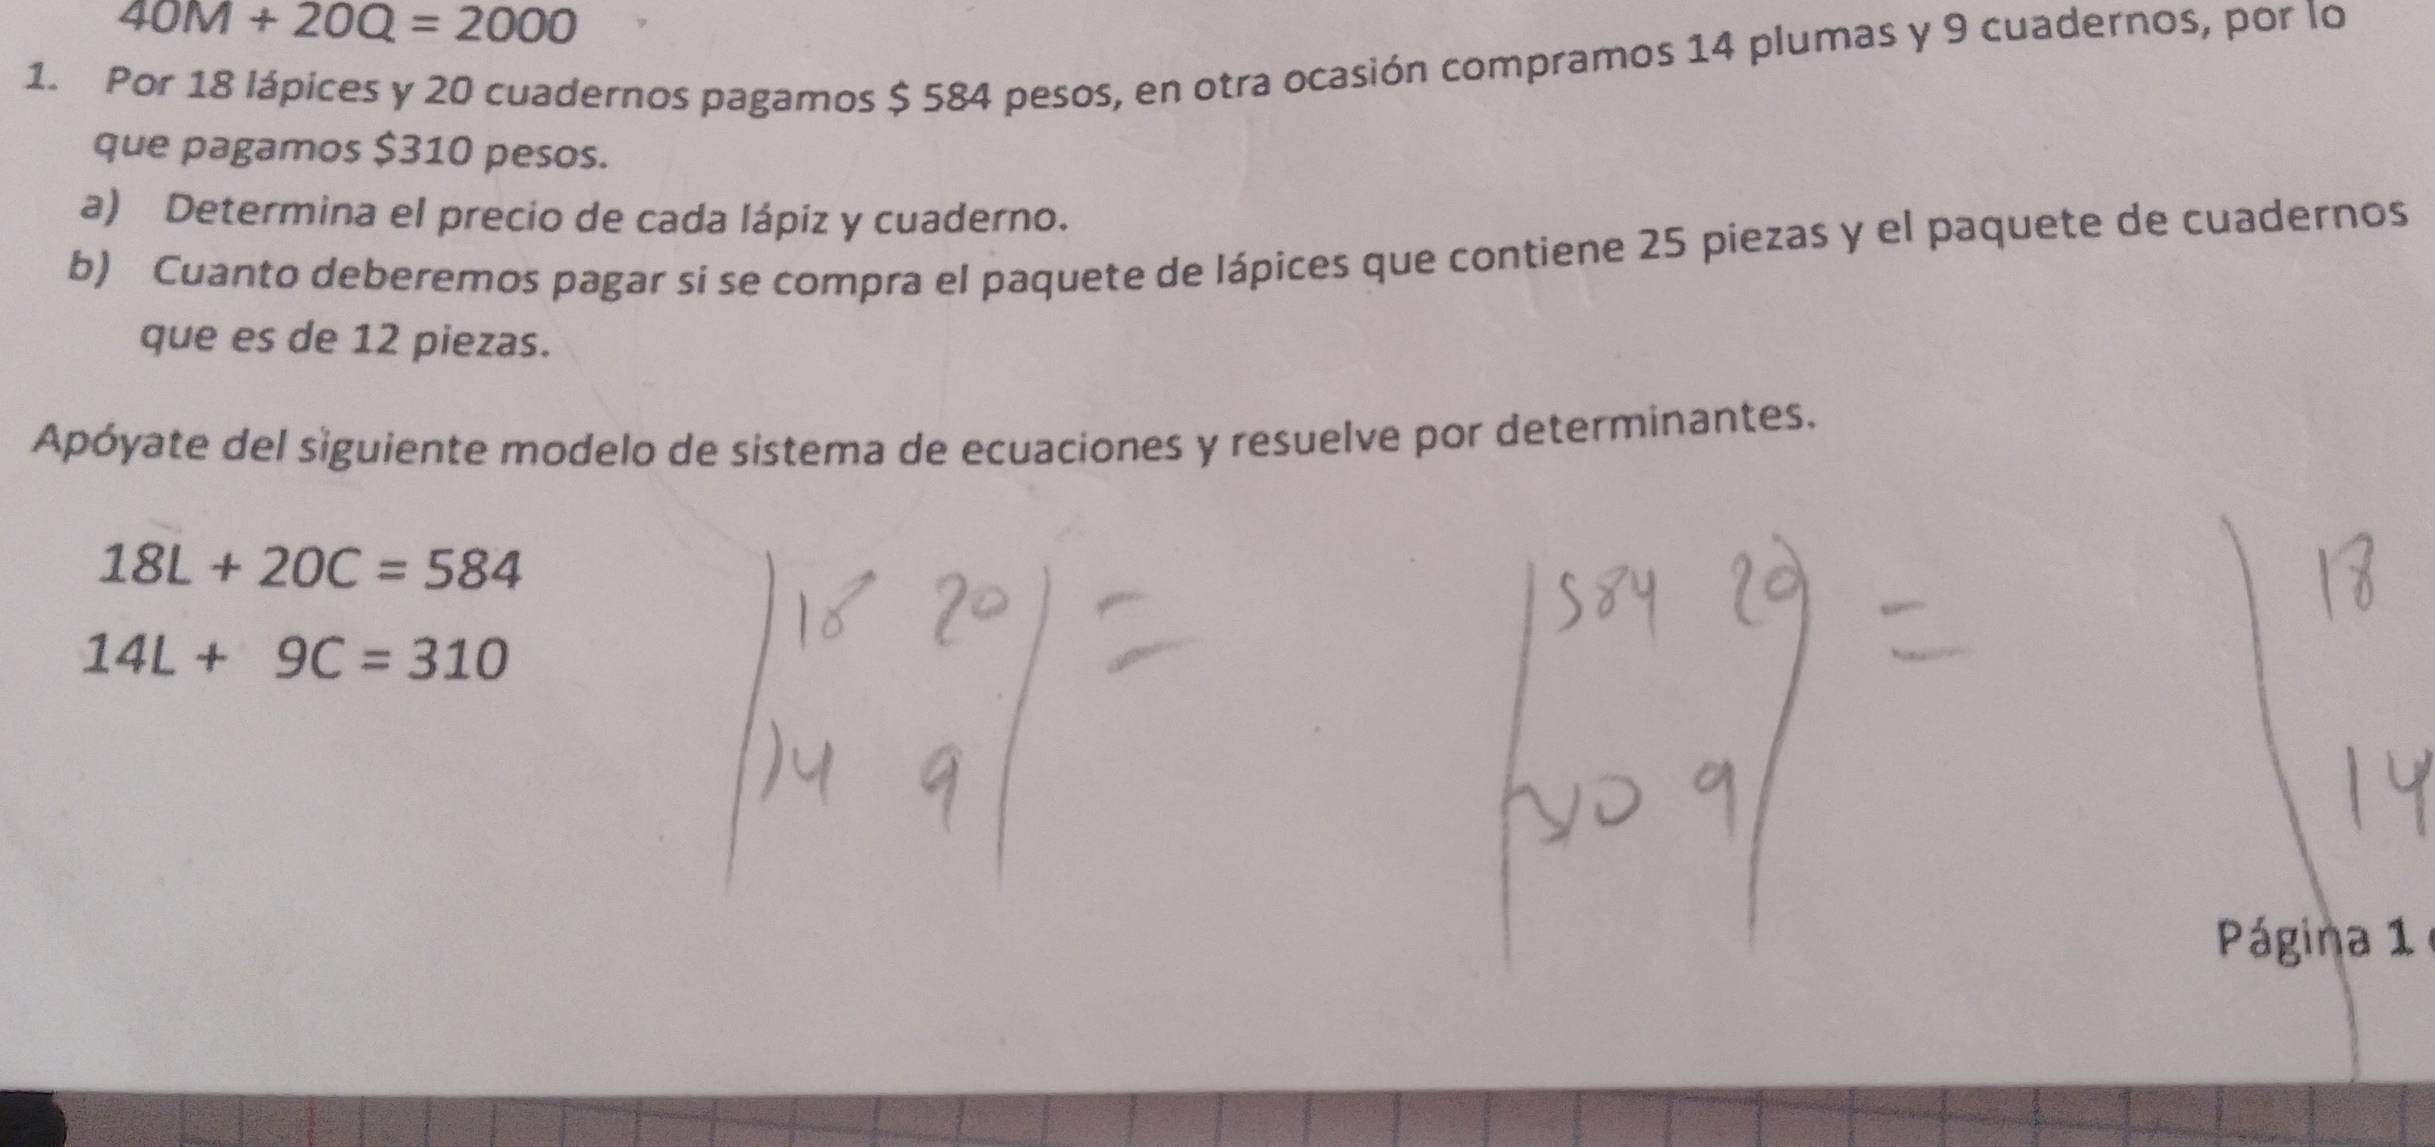 40M + 20Q = 2000
1. Por 18 lápices y 20 cuadernos pagamos $ 584 pesos, en otra ocasión compramos 14 plumas y 9 cuadernos, por lo
que pagamos $310 pesos.
a) Determina el precio de cada lápiz y cuaderno.
b) Cuanto deberemos pagar si se compra el paquete de lápices que contiene 25 piezas y el paquete de cuadernos
que es de 12 piezas.
Apóyate del siguiente modelo de sistema de ecuaciones y resuelve por determinantes.
18L + 20C = 584
14L + 9C = 310
|18 20| =
|14 9|
|584 20| =
|310 9|
|18
|14
Página 1